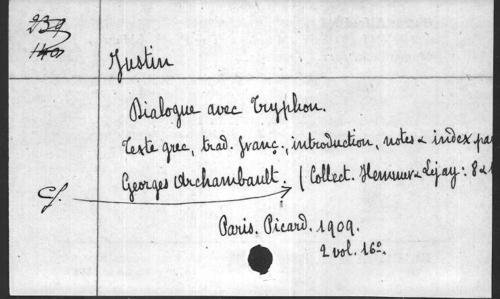 239
Justin
Dialogue avec Tryphon.
Texte grec, trad. franç., introduction, notes & index pa
Georges Archambault. (Collect. Hemmer & Lejay: 8 &
Cf.
Paris. Picard. 1909.
2 vol. 16º.